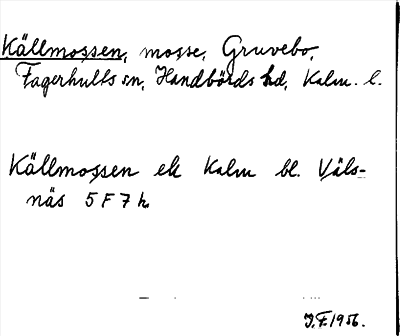 Källmossen, mosse, Gruvebo,
Fagerhults sn, Handbörds hd, Kalm. l.
Källmossen ek Kalm bl. Väls-
näs 5 F 7 h.
J.F. 1956.